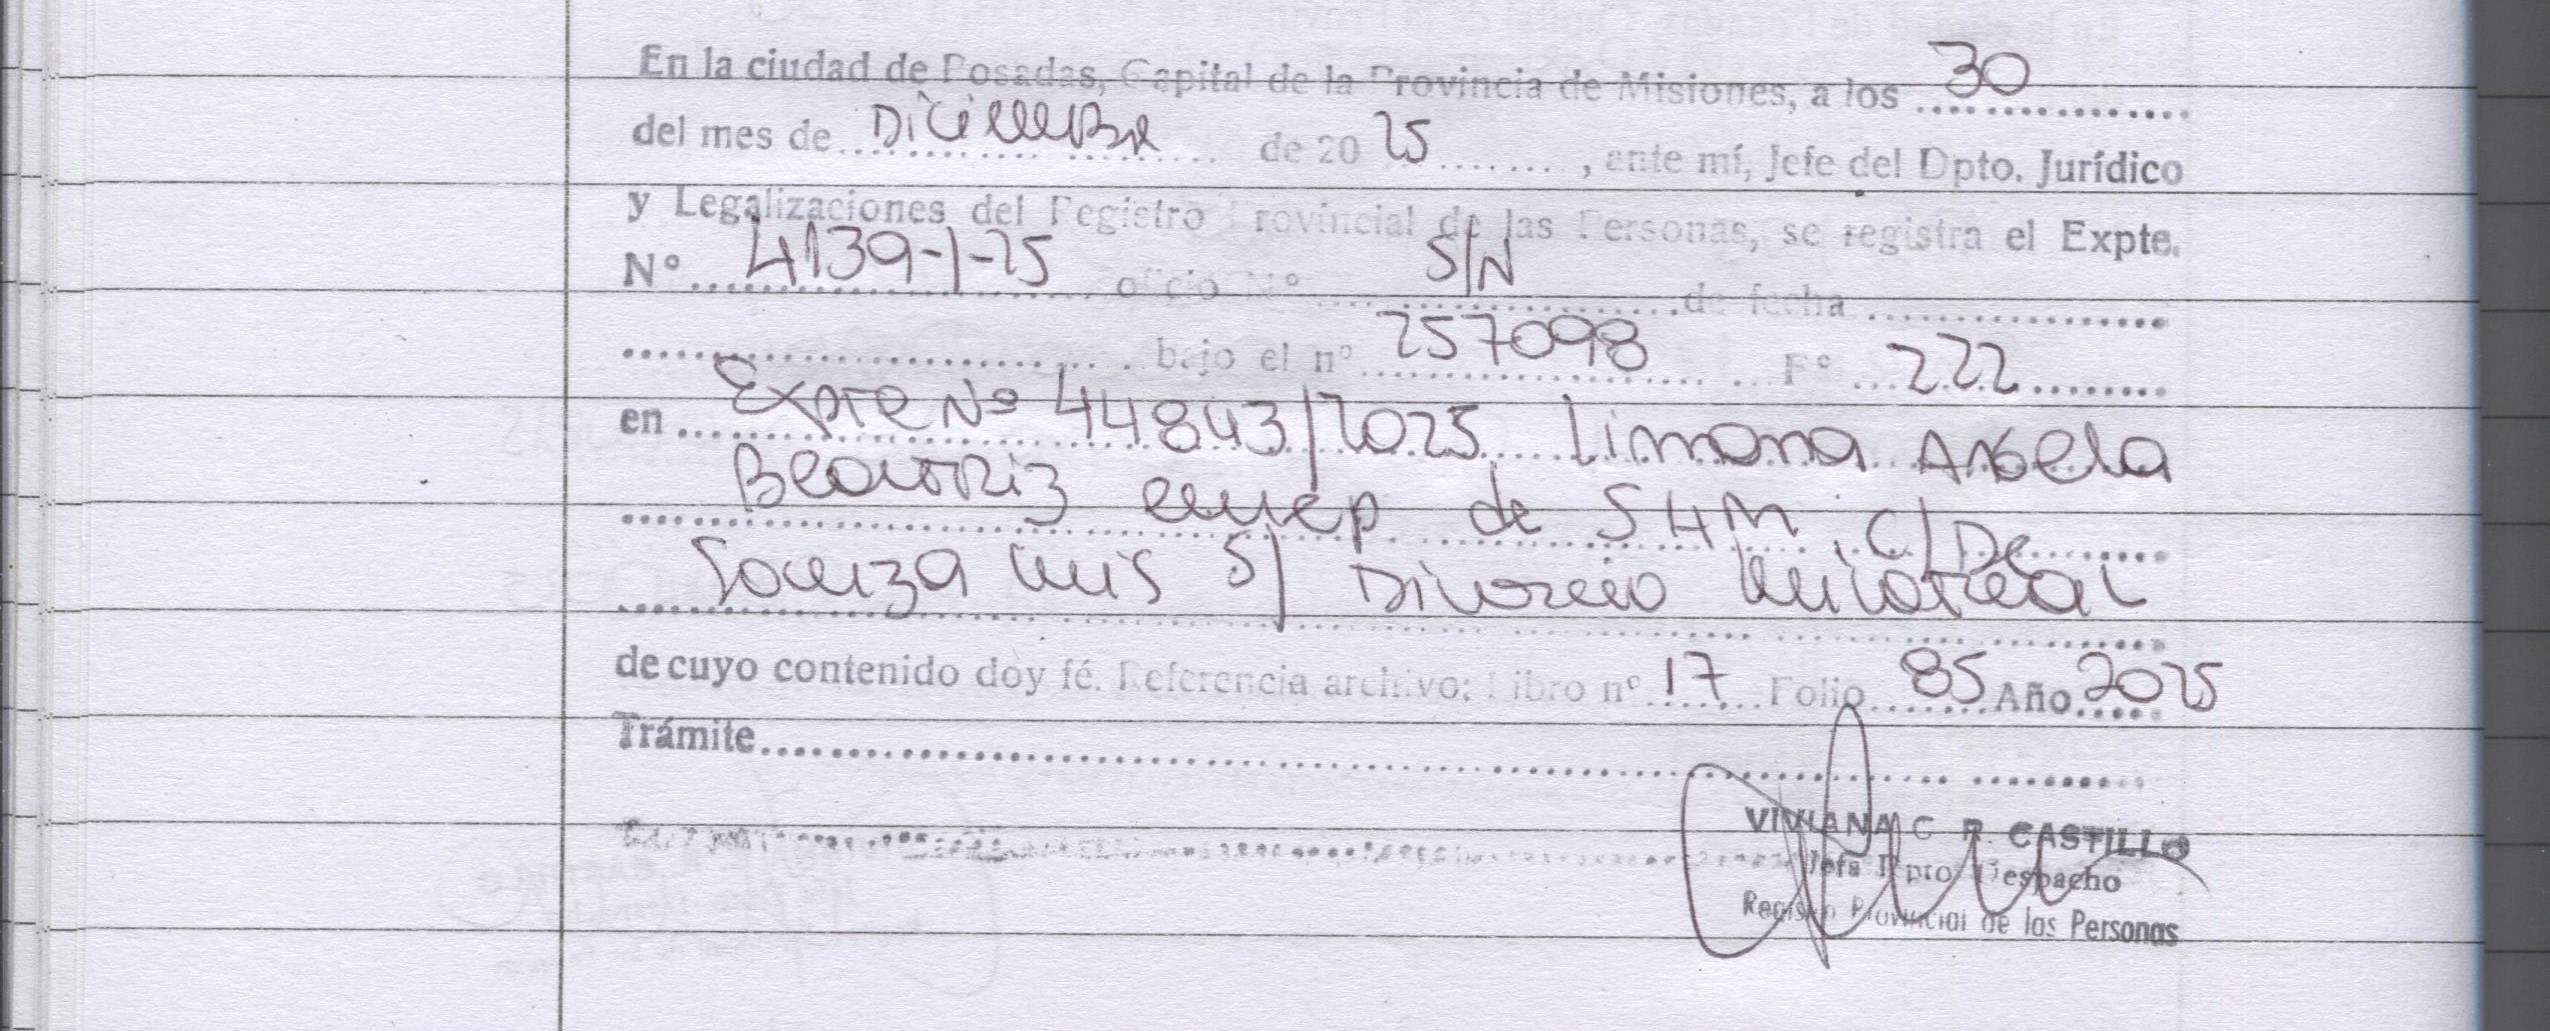 En la ciudad de Posadas, Capital de la Provincia de Misiones, a los 30
del mes de Diciembre de 20 25, ante mí, Jefe del Dpto. Jurídico
y Legalizaciones del Registro Provincial de las Personas, se registra el Expte.
Nº 4139-1-25 oficio Nº S/N de fecha
bajo el nº 257098 Fº 222
en Expte Nº 44843/2025 Limana Angela
Beatriz en rep de S H M C/ De
Souza Luis S/ Divorcio Unilateral
de cuyo contenido doy fé. Referencia archivo: Libro nº 17 Folio 85 Año 2025
Trámite
VIVIANA C. R. CASTILLO
Jefa Dpto. Despacho
Registro Provincial de las Personas